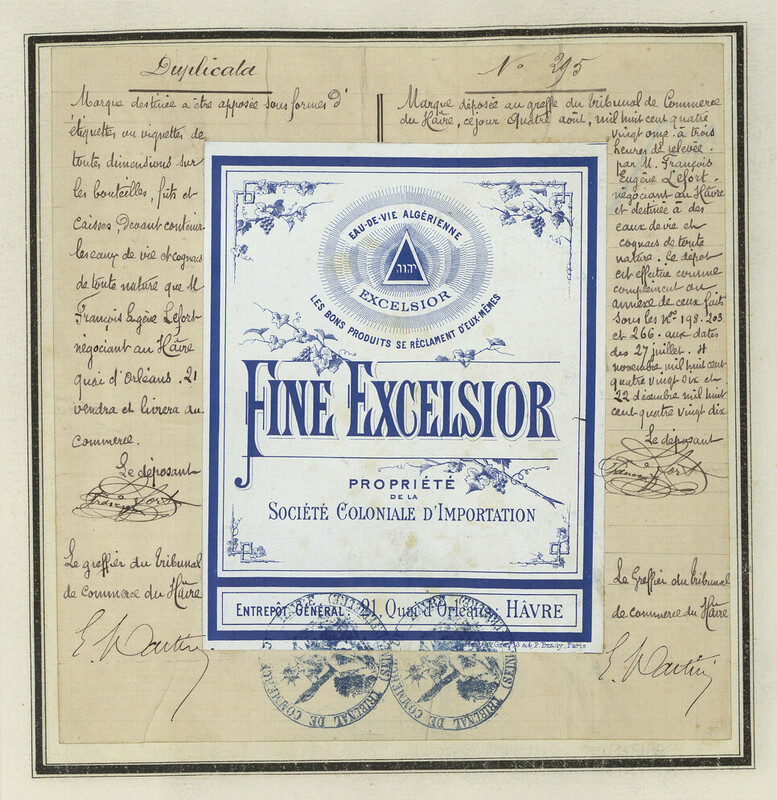 Duplicata
Marque destinée a être apposée sous formes d'
étiquettes ou vignettes de
toutes dimensions sur
les bouteilles, fûts et
caisses, devant contenir
les eaux de vie et cognacs
de toute nature que M
François Eugène Lefort
négociant au Hâvre
quai d'Orléans . 21
vendra et livrera au
commerce.
Le déposant
Le greffier du tribunal
de commerce du Hâvre
No 295
Marque déposée au greffe du tribunal de Commerce
du Hâvre, ce jour Quatre août, mil huit cent quatre
vingt onze . à trois
heures de relevée .
par M. François
Eugène Lefort .
négociant au Hâvre
et destinée à des
eaux de vie et
cognacs de toute
nature . Ce dépôt
est effectué comme
complément ou
annexe de ceux faits
sous les Nos 198 . 203
et 266 . aux dates
des 27 juillet . 4
novembre mil huit cent
quatre vingt dix et .
22 décembre mil huit
cent quatre vingt dix
Le déposant
Le Greffier du tribunal
de commerce du Hâvre
EAU-DE-VIE ALGÉRIENNE
יהוה
EXCELSIOR
LES BONS PRODUITS SE RÉCLAMENT D'EUX-MÊMES
FINE EXCELSIOR
PROPRIÉTÉ
DE LA
SOCIÉTÉ COLONIALE D'IMPORTATION
ENTREPÔT GÉNÉRAL : 21, Quai d'Orléans, HÂVRE
TRIBUNAL DE COMMERCE
TRIBUNAL DE COMMERCE